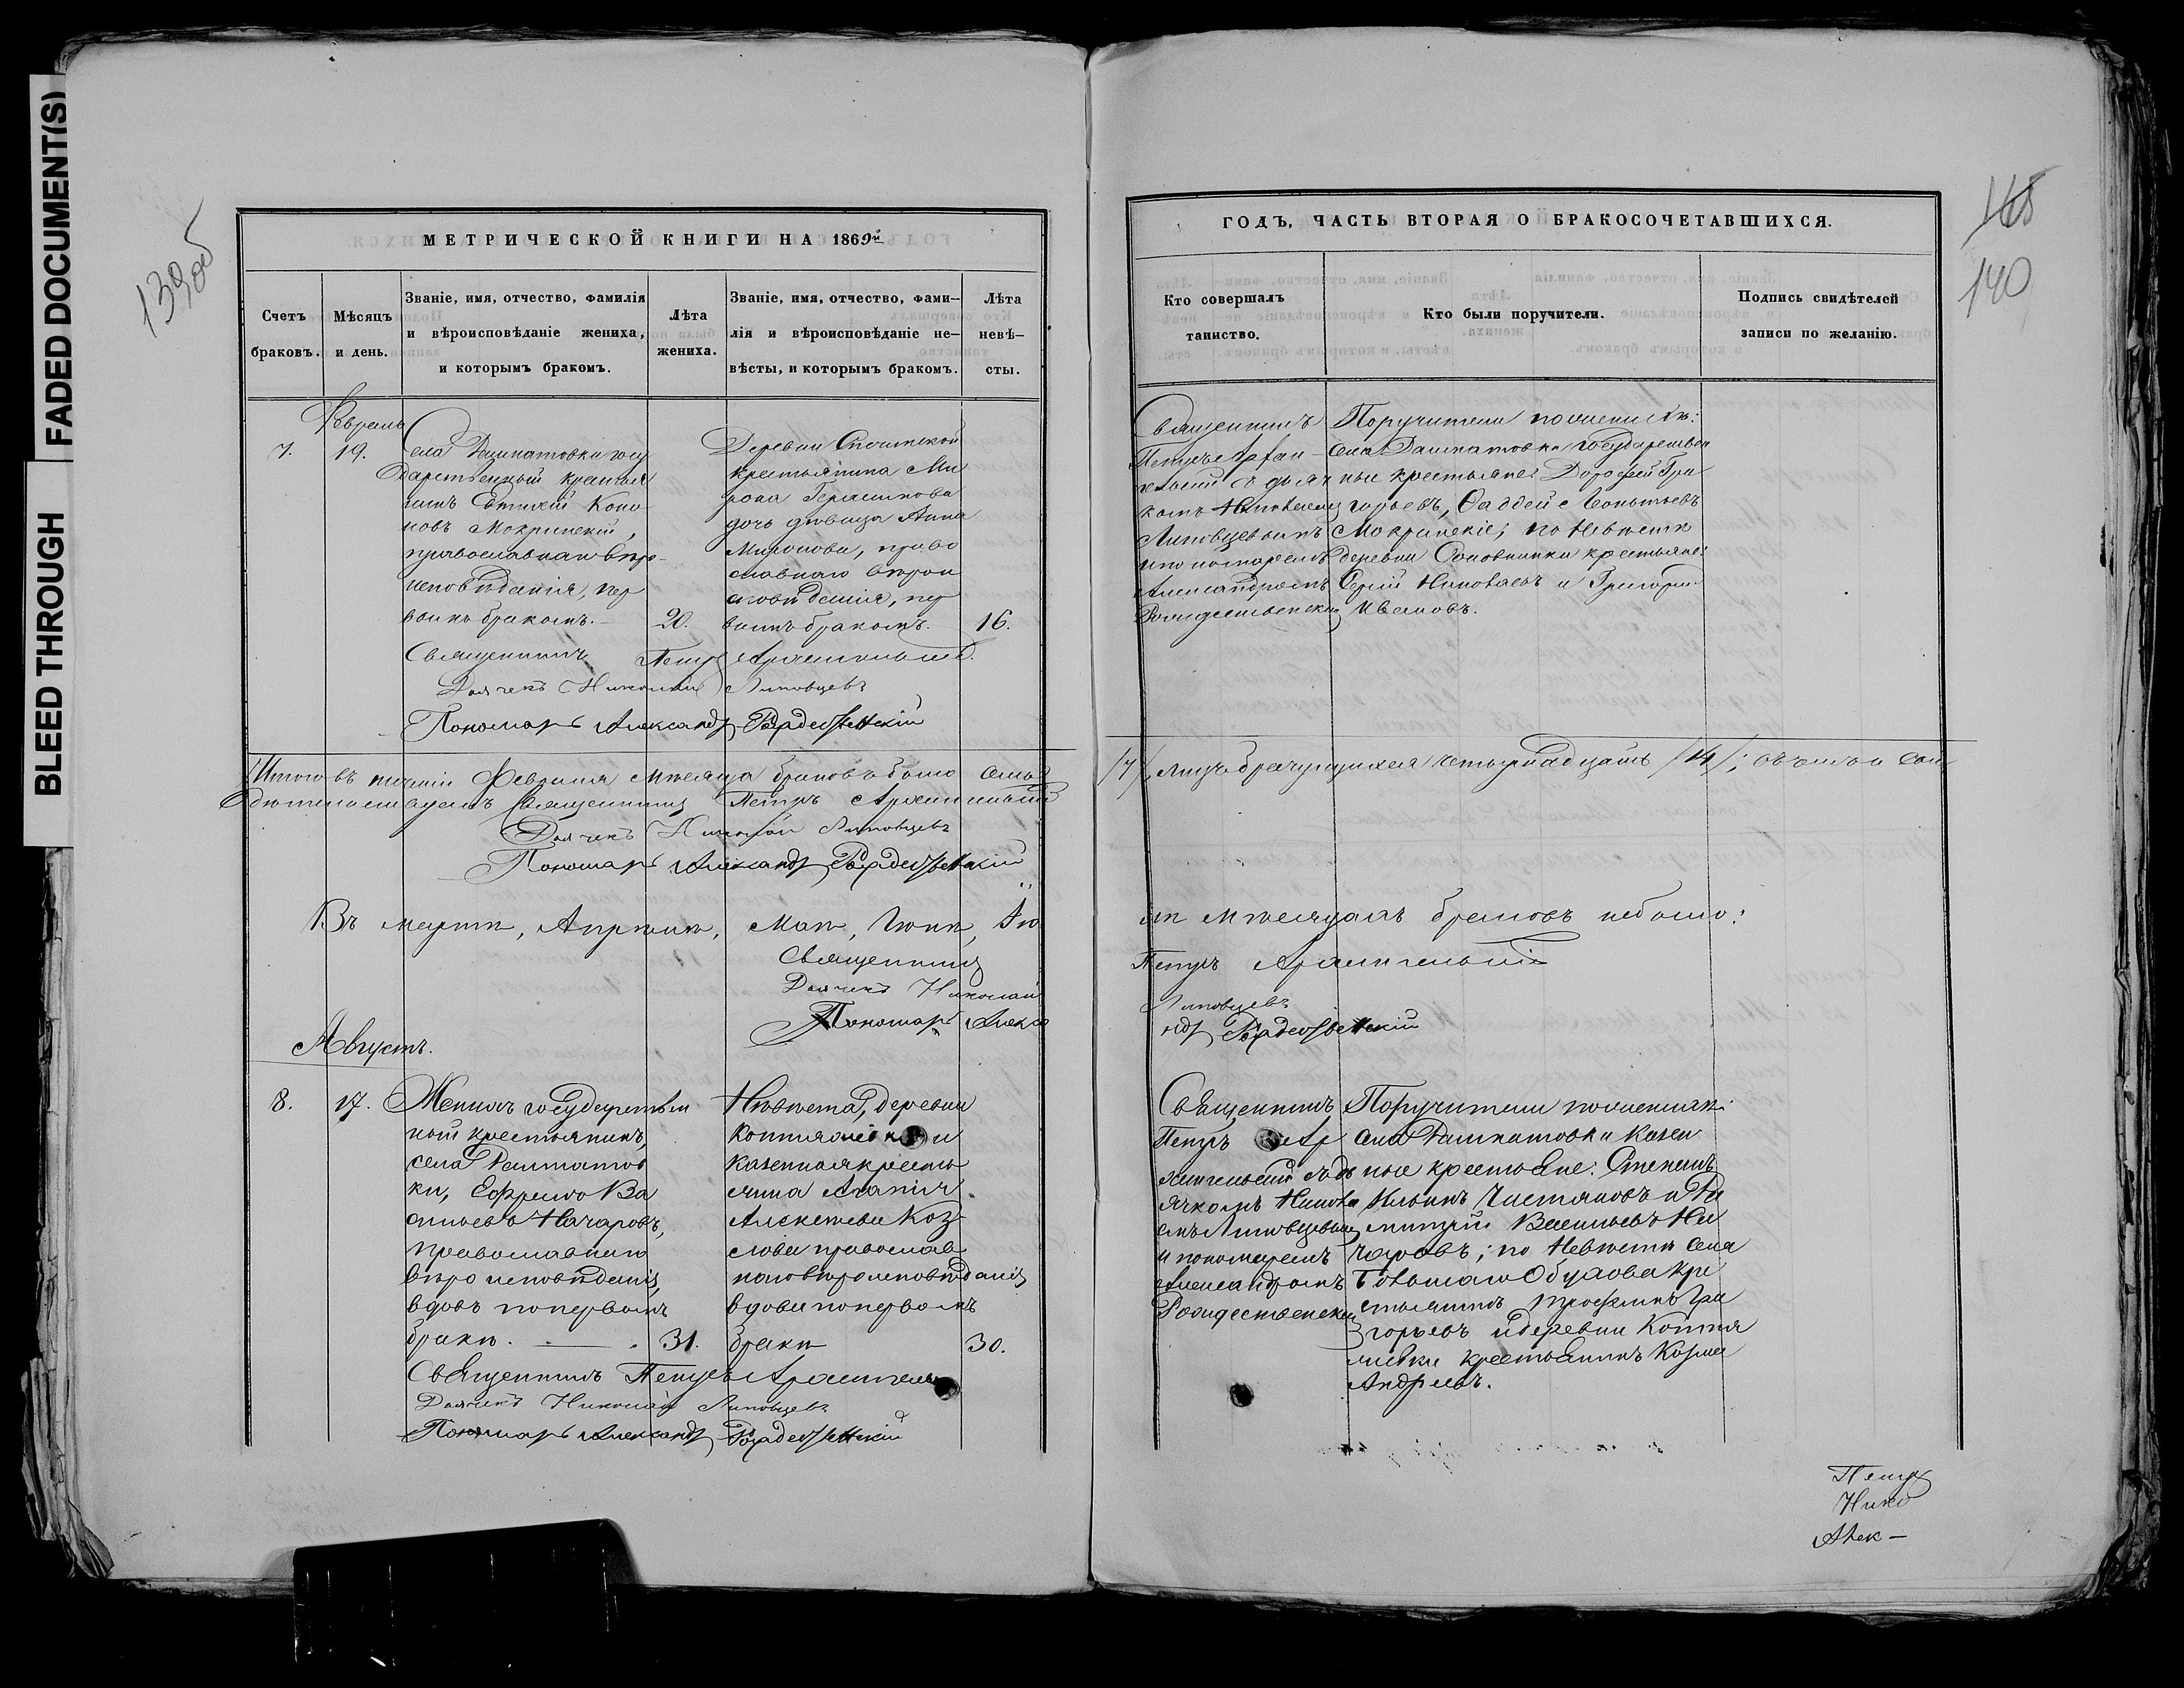 BLEED THROUGH
FADED DOCUMENT(S)
139об
МЕТРИЧЕСКОЙ КНИГИ НА 1869й
Счетъ браковъ.
Мѣсяцъ и день.
Званіе, имя, отчество, фамилія
и вѣроисповѣданіе жениха,
и которымъ бракомъ.
Лѣта жениха.
Званіе, имя, отчество, фами-
лія и вѣроисповѣданіе не-
вѣсты, и которымъ бракомъ.
Лѣта невѣ-
сты.
Февраль
7. 19.
Села Рашнатовки госу
дарственный крестья
нинъ Евтихій Коно
новъ Мокринскій,
православнаго вѣро-
исповѣданія, пер
вымъ бракомъ. 20.
Деревни
крестьянина Ми
рона Герасимова
дочь дѣвица Анна
Миронова, право
славнаго вѣрои
сповѣданія, пер
вымъ бракомъ. 16.
Священникъ Петръ Архангельскій
Дьячекъ Николай Липовцевъ
Пономарь Александръ Рождественскій
Итого въ теченіи Февраля мѣсяца браковъ было семь
Священникъ Петръ Архангельскій
Дьячекъ Николай Липовцевъ
Пономарь Александръ Рождественскій
Въ мартѣ, Апрѣлѣ, Маѣ, Іюнѣ, Ію
Священникъ
Дьячекъ Николай
Пономарь Алекса
Августъ.
8. 17.
Женихъ государствен
ный крестьянинъ,
села Рашнатов
ки, Ефремъ Ва
сильевъ Начаровъ,
православнаго
вѣроисповѣданія,
вдовъ по первомъ
бракѣ. 31.
Невѣста, деревни
казенная кресть
янка
Алексѣева Коз
лова православ
наго вѣроисповѣданія
вдова по первомъ
бракѣ 30.
Священникъ Петръ Архангель
Дьячекъ Николай Липовцевъ
Пономарь Александръ Рождественскій
165
140
ГОДЪ, ЧАСТЬ ВТОРАЯ О БРАКОСОЧЕТАВШИХСЯ.
Кто совершалъ
таинство.
Кто были поручители.
Подпись свидѣтелей
записи по желанію.
Священникъ
Петръ Архан-
гельскій съ дьяч
комъ Николаемъ
Липовцевымъ
и пономаремъ
Александромъ
Рождественскимъ
Поручители по женихѣ:
села Рашнатовки государствен
ные крестьяне: Дорофей Гри
горьевъ, Фаддей Леонтьевъ
Мокринскіе; по невѣстѣ
деревни крестьяне:
Сергій Николаевъ и Григорій
Ивановъ.
/7/, лицъ брачущихся четырнадцать /14/;
лѣ мѣсяцахъ браковъ небыло:
Петръ Архангельскій
Липовцевъ
ндръ Рождественскій
Священникъ
Петръ Ар
хангельскій съ дь
ячкомъ Никола
емъ Липовцевымъ
и пономаремъ
Александромъ
Рождественским
Поручители по женихѣ:
села Рашнатовки казен
ные крестьяне: Степанъ
Ильинъ Чистяковъ и Ди
митрій Васильевъ На
чаровъ; по невѣстѣ села
Обухова кре
стьянинъ Трофимъ Гри
горьевъ и деревни
крестьянинъ Козма
Андреевъ.
Петръ
Нико
Алек-